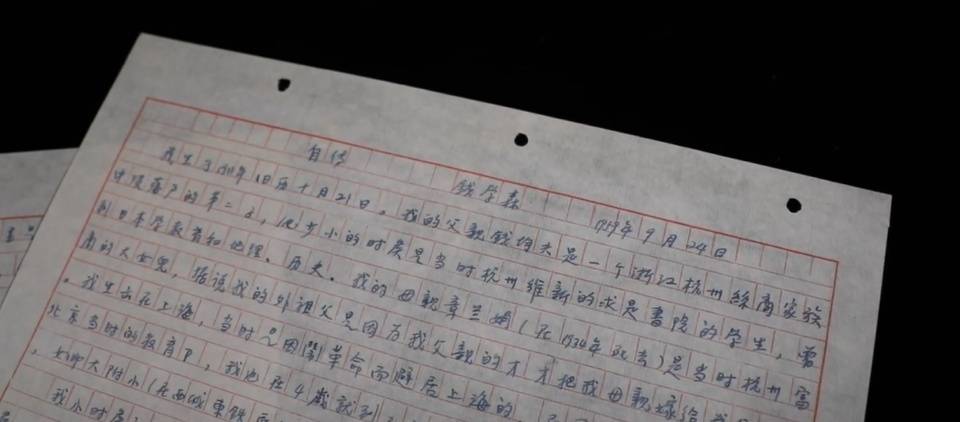 自传
钱学森 1959年9月24日
我生于1911年旧历十月21日，我的父亲钱均夫是一个浙江杭州絲商家族
中没落户的第二子，他少小的时候是当时杭州維新的求是書院的学生，曾
到日本学教育和地理、历史。我的母親章兰娟（在1934年死去）是当时杭州富
商的大女兒，据说我的外祖父是因为我父親的才才把我母親嫁给
。我生出在上海，当时是因闢革命而避居上海的
北京当时的教育部，我也在4歲就到
，女师大附小（在西城東铁
我小时